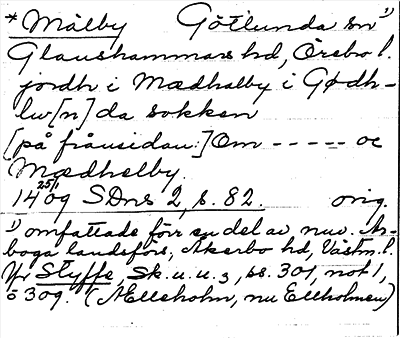 *Målby Götlunda sn 1)
Glanshammars hd, Örebro l.
jordh i Mædhalby i Gødh-
lw[n]da sokken
[på frånsidan:] Om ----- oc
Mædhelby.
14 25/1 09 SDns 2, s. 82. orig.
1) omfattade förr en del av nuv. Ar-
boga landsförs, Åkerbo hd, Västm. l.
Jfr Styffe, Sk. u. u. 3, ss. 301, not 1,
o 309. (Ælleholm, nu Ellholmen)